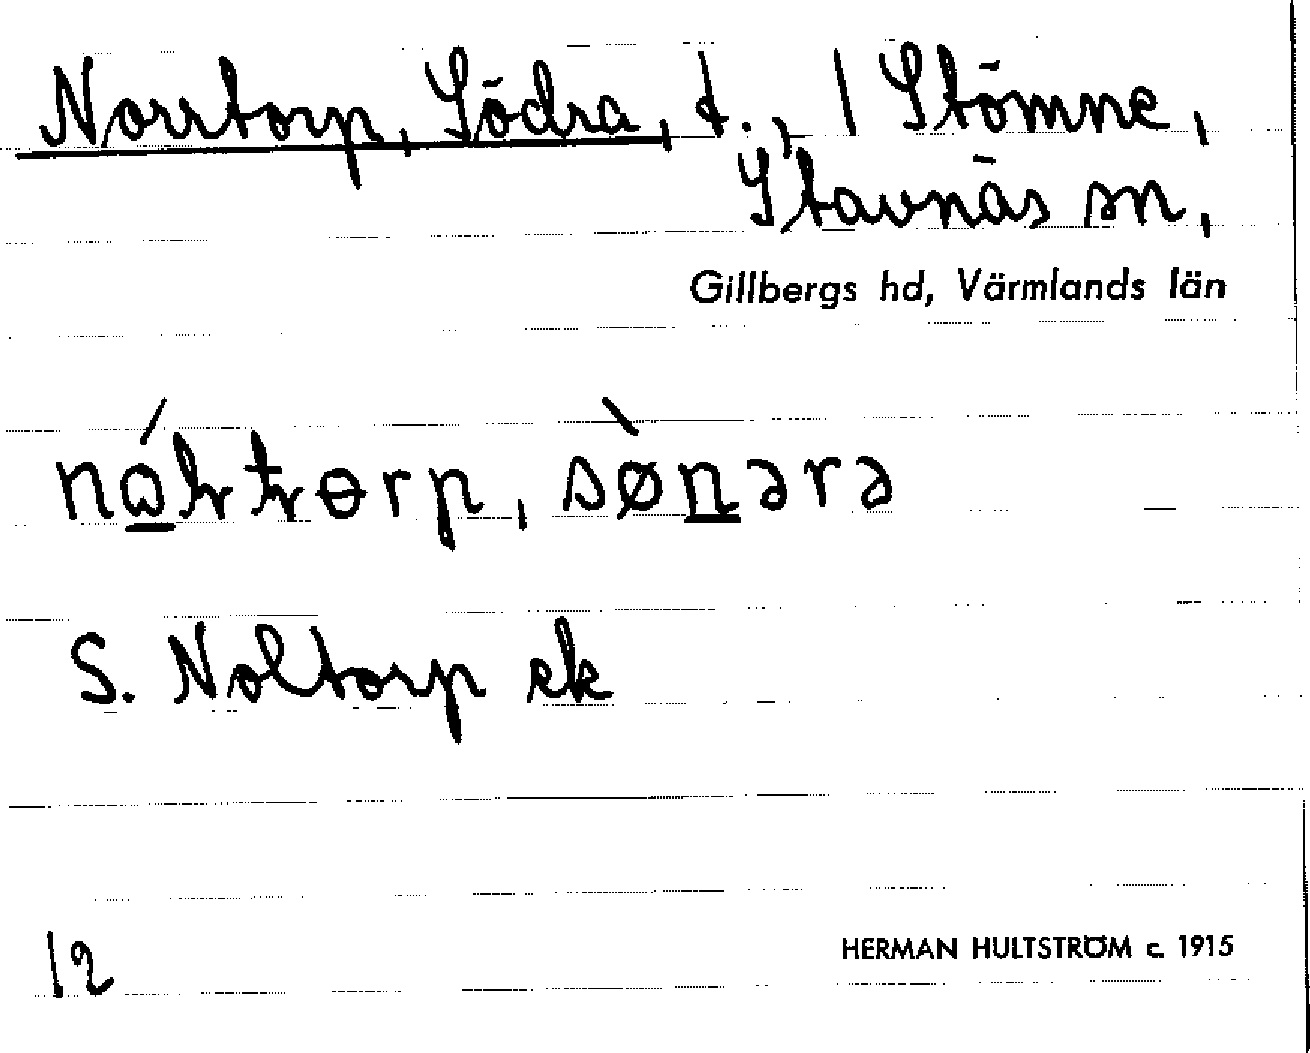 Norrtorp, Södra, t., / Stömne,
Stavnäs sn,
Gillbergs hd, Värmlands län
sø̀nərə
S. Noltorp ek
12
HERMAN HULTSTRÖM c. 1915